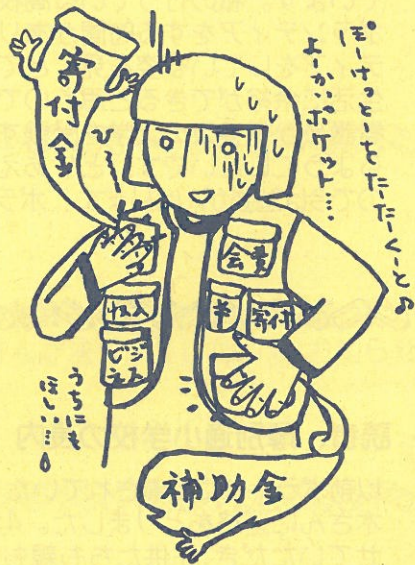 ぽーけっとーをたーたーくーと♪
よーかいポケット…
寄付金
ひ〜
会費
寄付
収入
ビジネス
うちにも
ほしい…
補助金